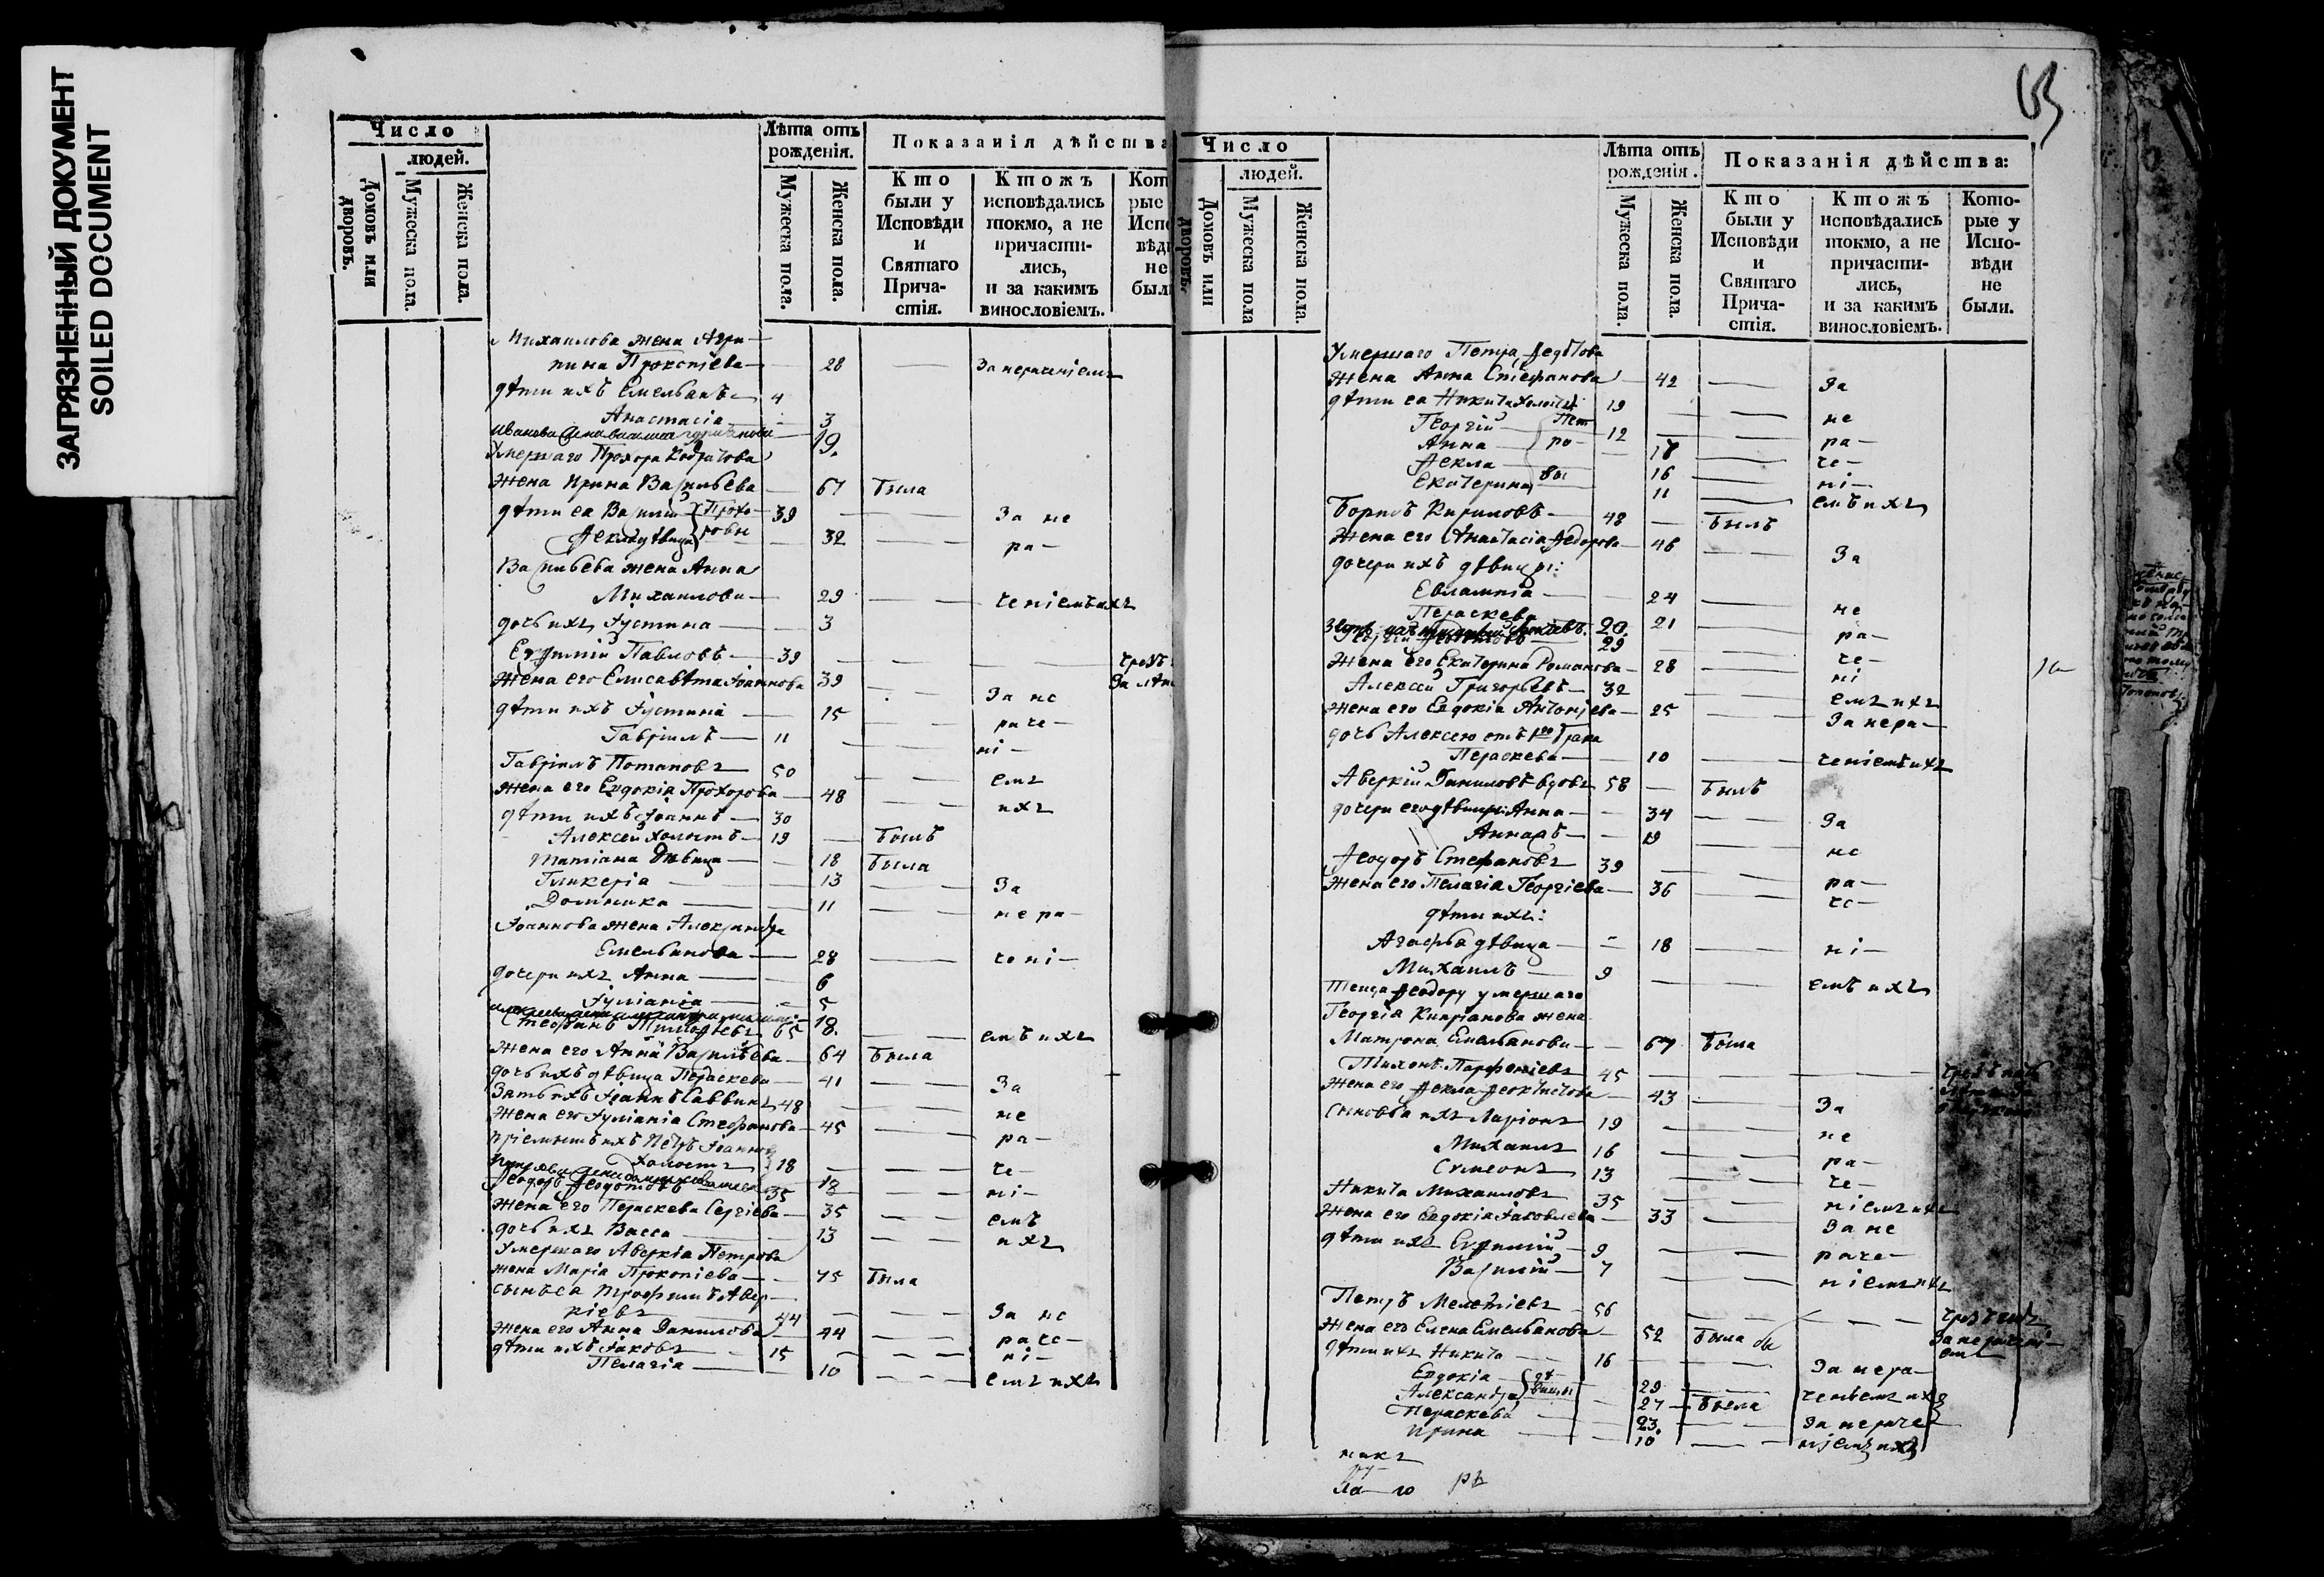 ЗАГРЯЗНЕННЫЙ ДОКУМЕНТ
SOILED DOCUMENT
Число
людей.
Домовъ или дворовъ.
Мужеска пола.
Женска пола.
Лѣта отъ рожденія.
Мужеска пола.
Женска пола.
Показанія дѣйства
Кто были у Исповѣди и Святаго Прича-стія.
Ктожъ исповѣдались токмо, а не причасти-лись, и за какимъ винословіемъ.
Михаилова жена Агри-
пина Прокопіева 28 За нераченіемъ
дѣти ихъ Емельянъ 4
Анастасія 3
19.
Умершаго Прохора
жена Ирина Васильева 67 была
дѣти ея Василій Прохо- 39 За не
Ѳекла дѣвица ровы 32 ра-
Васильева жена Анна
Михаилова 29 ченіемъ ихъ
дочь ихъ Іустина 3
Евѳимій Павловъ 39
жена его Елисавѣта Іоаннова 39 За не
дѣти ихъ Іустина 15 раче-
Гавріилъ 11 ні-
Гавріилъ Потаповъ 50 емъ
жена его Евдокія Прохорова 48 ихъ
дѣти ихъ Іоаннъ 30
Алексей холостъ 19 былъ
Татіана дѣвица 18 была
Гликерія 13 За
Домника 11 не ра-
Іоаннова жена Александра
Емельянова 28 чені-
дочери ихъ Анна 6
Іуліанія 5
18.
Стефанъ 65 емъ ихъ
жена его Анна Васильева 64 была
дочь ихъ дѣвица Параскева 41 За
Зять ихъ Іоаннъ Саввинъ 48 не
жена его Іуліанія Стефанова 45 ра-
пріемышъ ихъ Петръ Іоанновъ
холостъ 18 че-
18
Ѳеодоръ Ѳедотовъ 35 ні-
жена его Параскева Сергіева 35 емъ
дочь ихъ Васса 13 ихъ
Умершаго Аверкіа Петрова
жена Марія Прокопіева 75 была
сынъ ея Трофимъ Авер-
кіевъ 44 За не
жена его Анна Данилова 44 раче-
дѣти ихъ Іаковъ 15 ні-
Пелагія 10 емъ ихъ
Число
людей.
Домовъ или дворовъ.
Мужеска пола
Женска пола.
Лѣта отъ рожденія.
Мужеска пола.
Женска пола.
Показанія дѣйства:
Кто были у Исповѣди и Святаго Прича-стія.
Ктожъ исповѣдались токмо, а не причасти-лись, и за какимъ винословіемъ.
Кото-рые у Испо-вѣди не были.
Умершаго Петра Ѳедотова
жена Анна Стефанова 42 За
дѣти ея Никита холостъ 19 не
Георгій Пет 12 ра-
Анна ро- 18 че-
Ѳекла вы 16 ні-
Екатерина 11 емъ ихъ
Борисъ Кириловъ 48 былъ
жена его Анастасія Ѳедорова 46 За
дочери ихъ дѣвицы:
Евлампія 24 не
Параскева 21 ра-
20.
29 че-
жена его Екатерина Романова 28 ні
Алексей Григорьевъ 32 емъ ихъ
жена его Евдокія Антоніева 25 За нера-
дочь Алексею отъ 1го брака
Параскева 10 ченіемъ ихъ
Аверкій Даниловъ вдовъ 58 былъ
дочери его дѣвицы: Анна 34 За
Анна 19 не
Ѳеодоръ Стефановъ 39 ра-
жена его Пелагія Георгіева 36 че-
дѣти ихъ:
Агафья дѣвица 18 ні-
Михаилъ 9 емъ ихъ
Теща Ѳеодору умершаго
Георгія Кипріанова жена
Матрона Емельянова 67 была
Тихонъ Парфеніевъ 45
жена его Ѳекла Ѳеоктистова 43 За
сыновья ихъ Ларіонъ 19 не
Михаилъ 16 ра-
Симеонъ 13 че-
Никита Михаиловъ 35 ніемъ ихъ
жена его Евдокія Іаковлева 33 За не
дѣти ихъ Евѳимій 9 раче-
Василій 7 ніемъ ихъ
Петръ Мелетіевъ 56
жена его Елена Емельянова 52 была
дѣти ихъ Никита 16 За нера-
Евдокія дѣ- 29 ченіемъ ихъ
Александра вицы 27 была
Параскева 23. За нераче-
Ирина 10 ніемъ ихъ